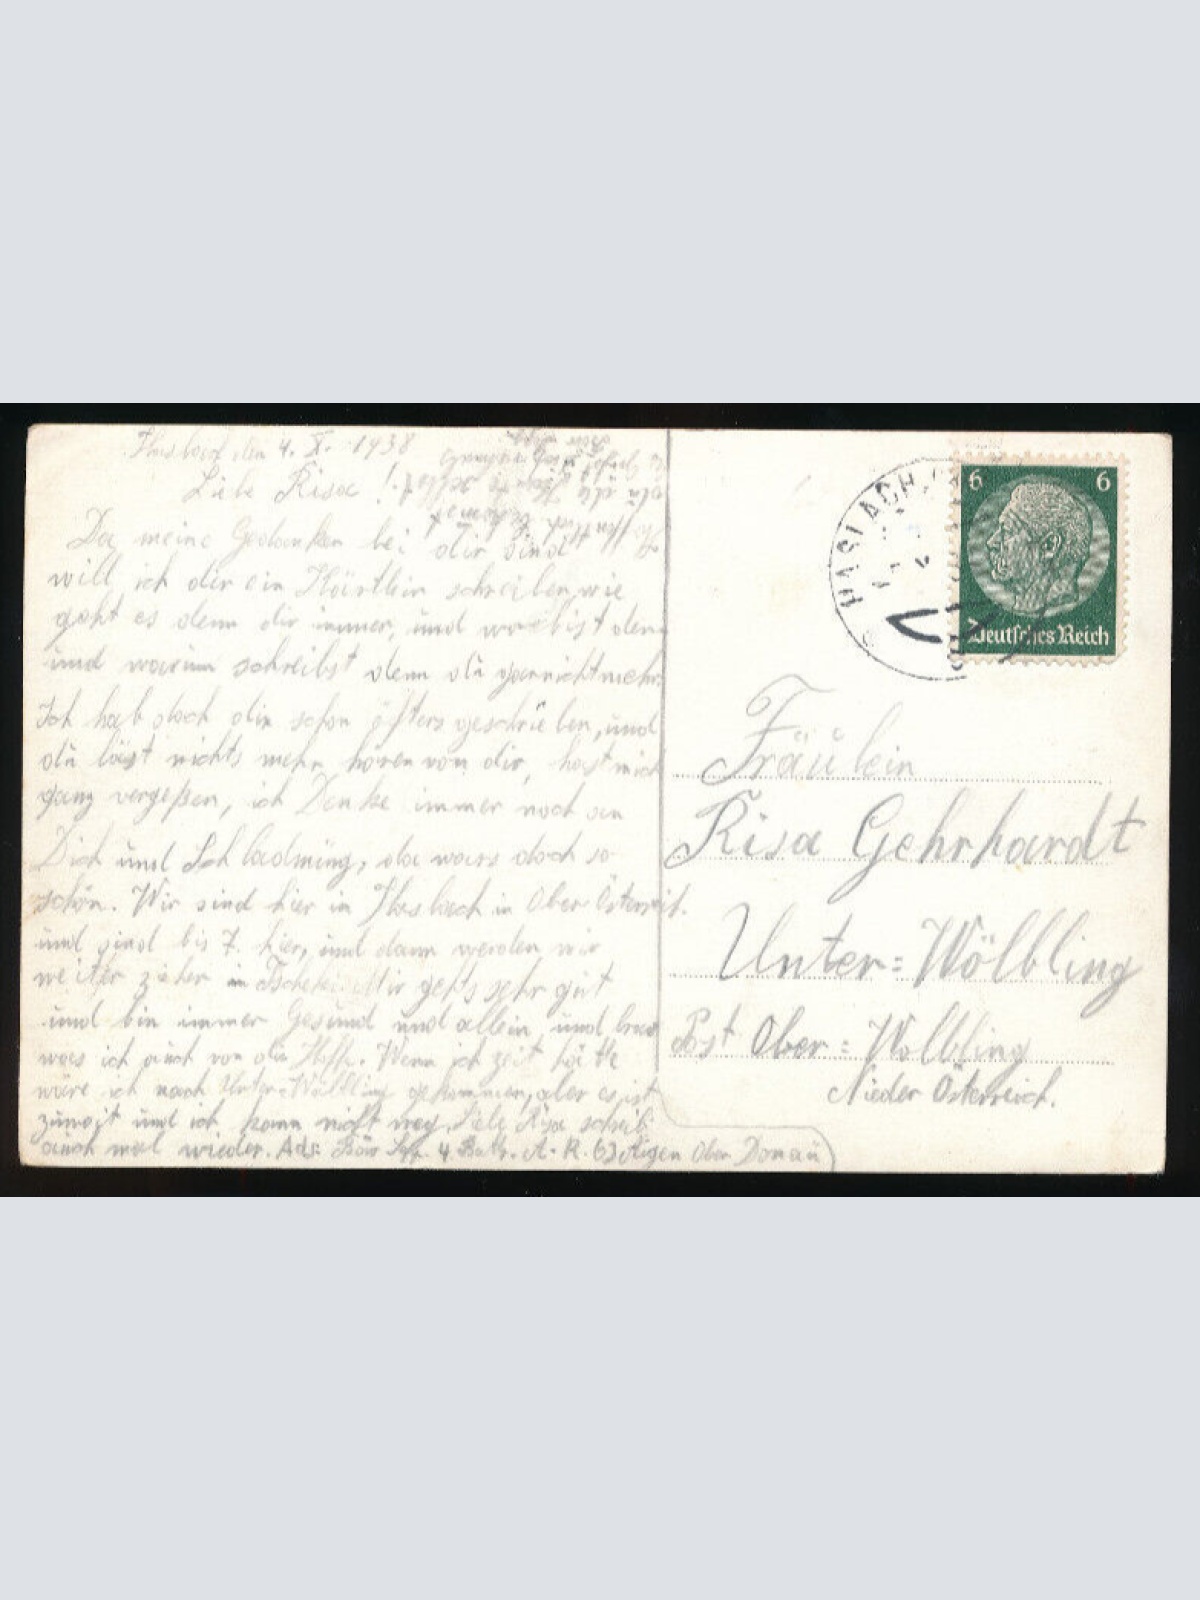 Haslach den 4. X. 1938
Liebe Risa!
Da meine Gedanken bei dir sind
will ich dir ein Kärtlein schreiben, wie
geht es denn dir immer, und wo bist denn
und warum schreibst denn dū garnicht mehr.
Ich hab doch dir schon öfters geschrieben, und
dū läst nichts mehr hören von dir, hast mich
ganz vergeßen, ich Denke immer noch an
Dich und Schladming, da wars doch so
schön. Wir sind hier in Haslach in Ober-Österreich.
und sind bis 7. hier, und dann werden wir
weiter ziehen in Tschechei. Mir gehts sehr gūt
und bin immer Gesund und allein, und brav
was ich aūch von dir Hoffe. Wenn ich zeit hätte
wäre ich nach Unter-Wölbling gekommen, aber es ist
zuweit und ich kann nicht weg, Liebe Risa schreib
aūch mal wieder. Ads: 4. Batt. A. R. 63 Aigen Ober Donau
HASLACH
6 6
Deutsches Reich
Fräulein
Risa Gehrhardt
Unter=Wölbling
Post Ober=Wolbling
Nieder Österreich.